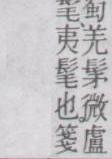 蜀羌髳微盧
髦夷髦也。箋